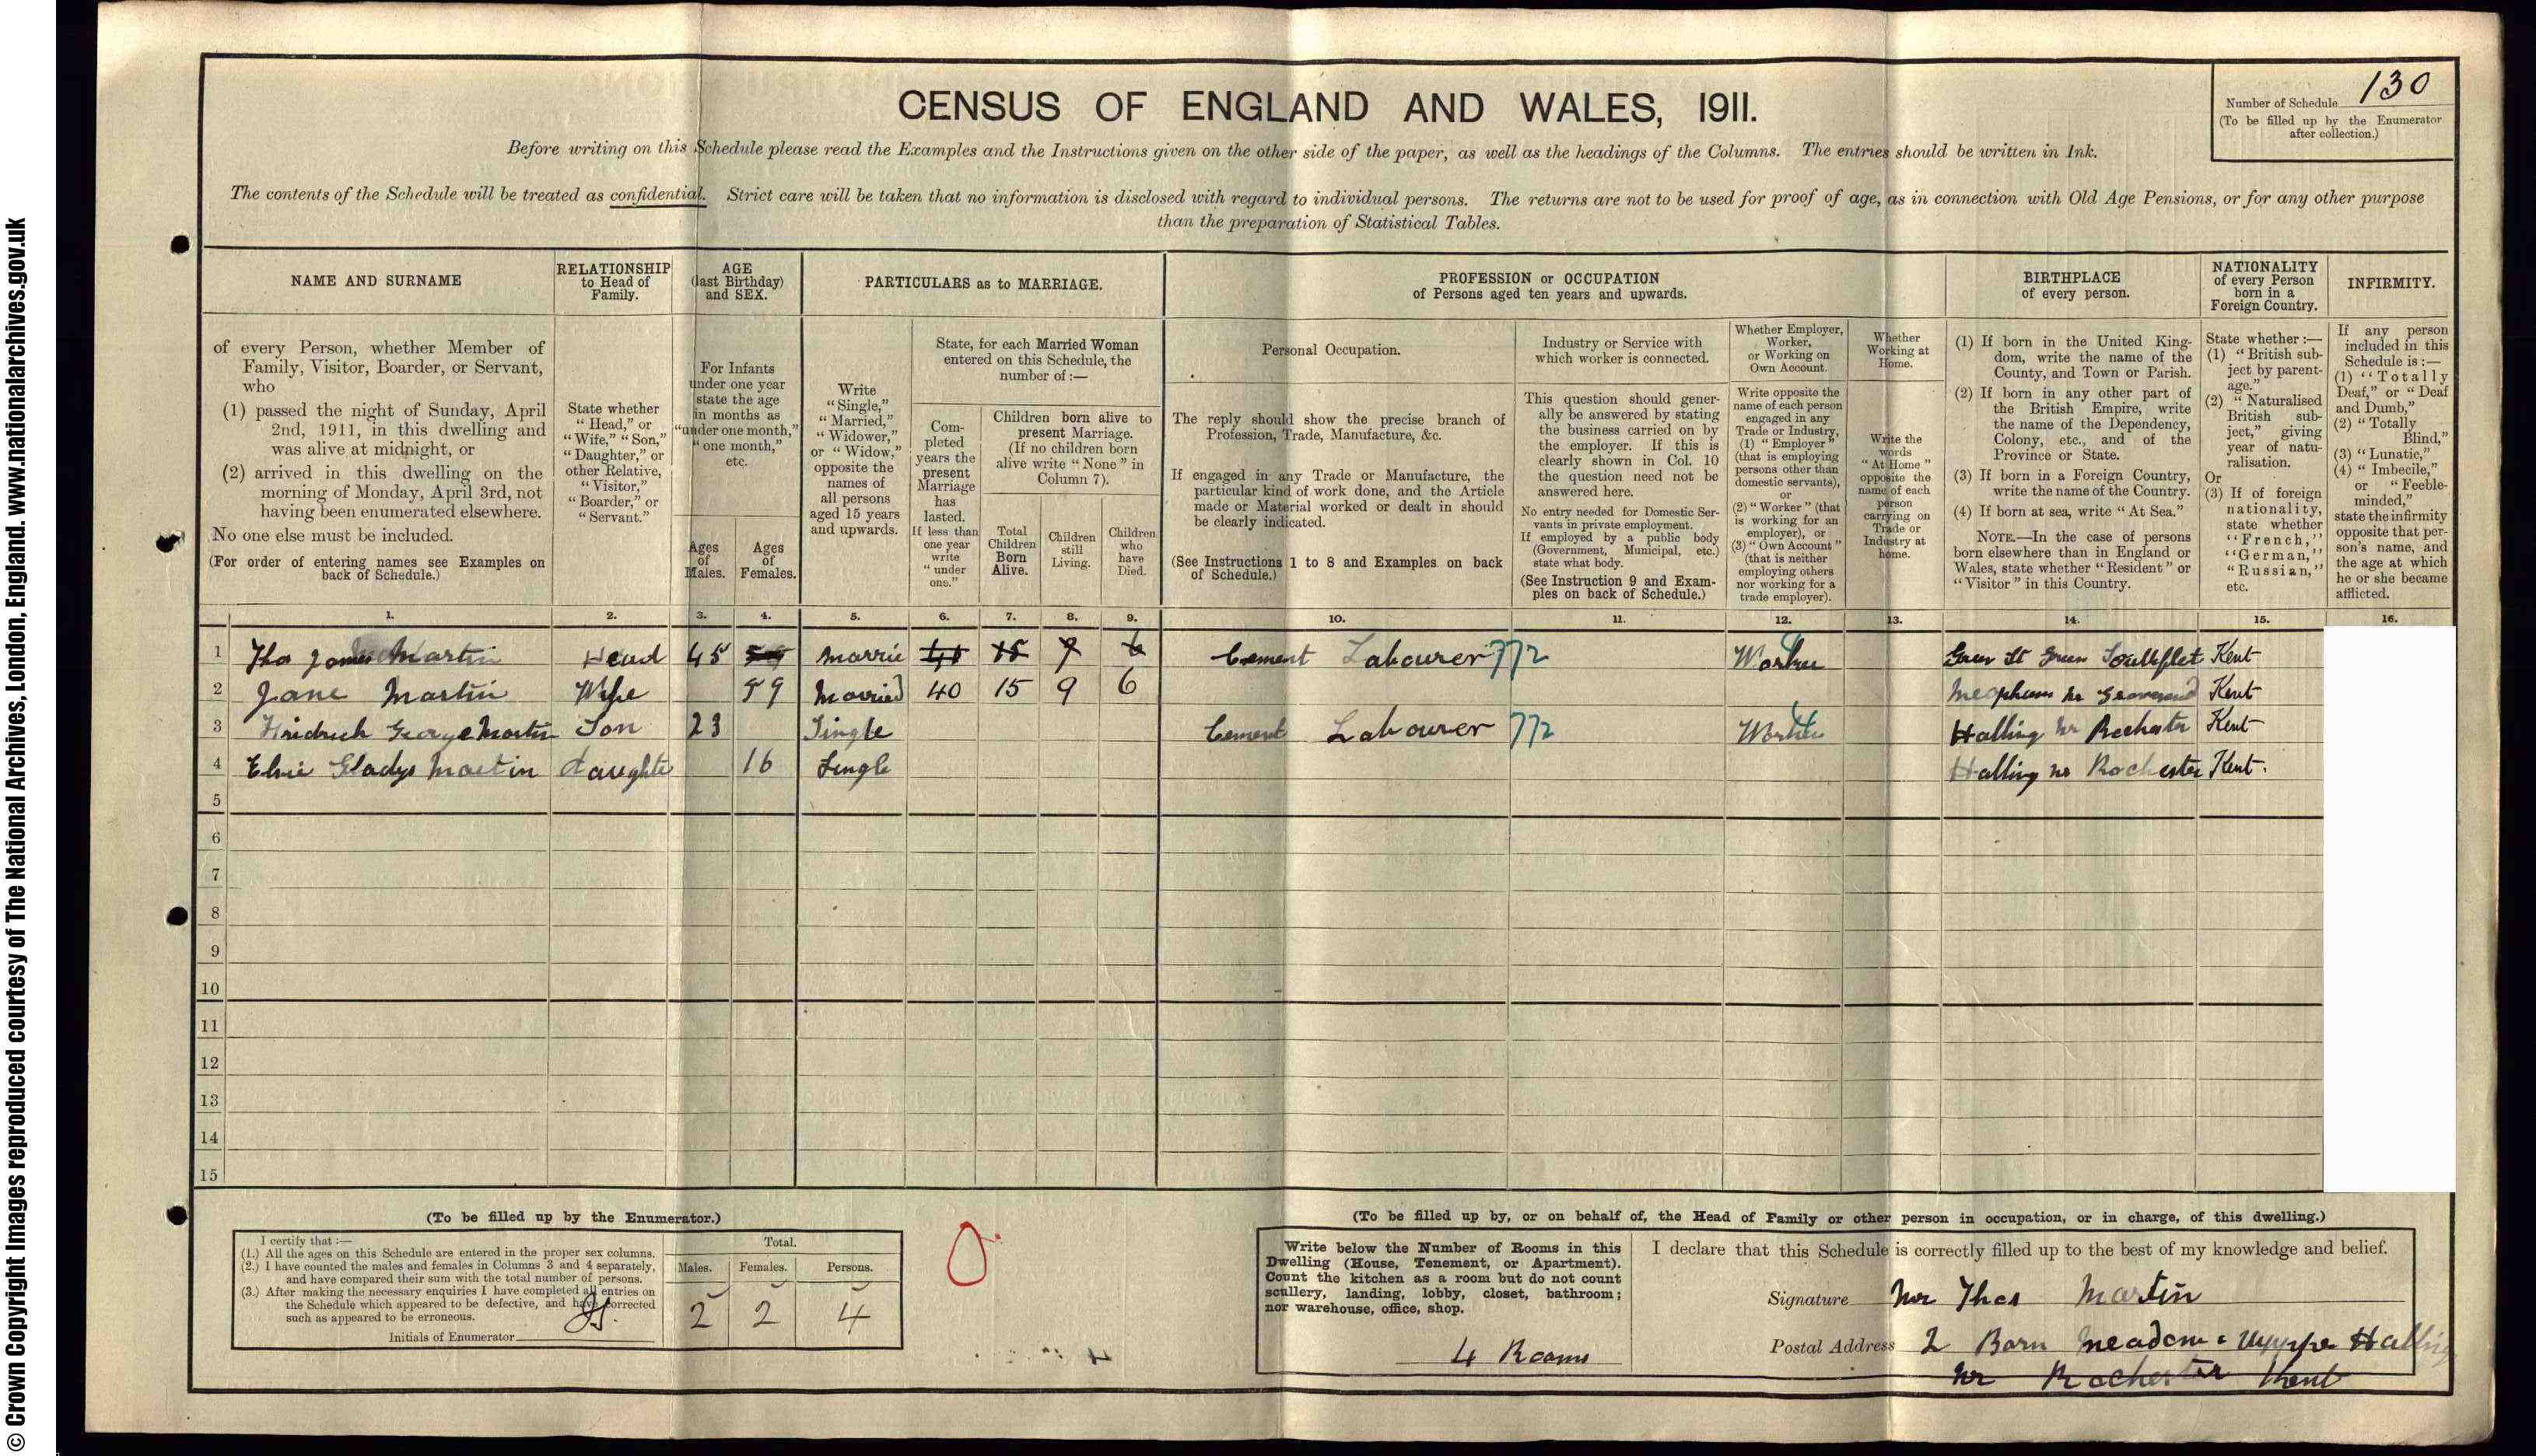 © Crown Copyright Images reproduced courtesy of The National Archives, London, England. www.nationalarchives.gov.uk
CENSUS OF ENGLAND AND WALES, 1911.
Number of Schedule 130
(To be filled up by the Enumerator after collection.)
Before writing on this Schedule please read the Examples and the Instructions given on the other side of the paper, as well as the headings of the Columns. The entries should be written in Ink.
The contents of the Schedule will be treated as confidential. Strict care will be taken that no information is disclosed with regard to individual persons. The returns are not to be used for proof of age, as in connection with Old Age Pensions, or for any other purpose
than the preparation of Statistical Tables.
NAME AND SURNAME
of every Person, whether Member of
Family, Visitor, Boarder, or Servant,
who
(1) passed the night of Sunday, April
2nd, 1911, in this dwelling and
was alive at midnight, or
(2) arrived in this dwelling on the
morning of Monday, April 3rd, not
having been enumerated elsewhere.
No one else must be included.
(For order of entering names see Examples on
back of Schedule.)
RELATIONSHIP
to Head of
Family.
State whether
"Head," or
"Wife," "Son,"
"Daughter," or
other Relative,
"Visitor,"
"Boarder," or
"Servant."
AGE
(last Birthday)
and SEX.
For Infants
under one year
state the age
in months as
"under one month,"
"one month,"
etc.
Ages
of
Males.
Ages
of
Females.
PARTICULARS as to MARRIAGE.
Write
"Single,"
"Married,"
"Widower,"
or "Widow,"
opposite the
names of
all persons
aged 15 years
and upwards.
State, for each Married Woman
entered on this Schedule, the
number of :—
Com-
pleted
years the
present
Marriage
has
lasted.
If less than
one year
write
"under
one."
Children born alive to
present Marriage.
(If no children born
alive write "None" in
Column 7).
Total
Children
Born
Alive.
Children
still
Living.
Children
who
have
Died.
PROFESSION or OCCUPATION
of Persons aged ten years and upwards.
Personal Occupation.
The reply should show the precise branch of
Profession, Trade, Manufacture, &c.
If engaged in any Trade or Manufacture, the
particular kind of work done, and the Article
made or Material worked or dealt in should
be clearly indicated.
(See Instructions 1 to 8 and Examples on back
of Schedule.)
Industry or Service with
which worker is connected.
This question should gener-
ally be answered by stating
the business carried on by
the employer. If this is
clearly shown in Col. 10
the question need not be
answered here.
No entry needed for Domestic Ser-
vants in private employment.
If employed by a public body
(Government, Municipal, etc.)
state what body.
(See Instruction 9 and Exam-
ples on back of Schedule.)
Whether Employer,
Worker,
or Working on
Own Account.
Write opposite the
name of each person
engaged in any
Trade or Industry,
(1) "Employer"
(that is employing
persons other than
domestic servants),
or
(2) "Worker" (that
is working for an
employer), or
(3) "Own Account"
(that is neither
employing others
nor working for a
trade employer).
Whether
Working at
Home.
Write the
words
"At Home"
opposite the
name of each
person
carrying on
Trade or
Industry at
home.
BIRTHPLACE
of every person.
(1) If born in the United King-
dom, write the name of the
County, and Town or Parish.
(2) If born in any other part of
the British Empire, write
the name of the Dependency,
Colony, etc., and of the
Province or State.
(3) If born in a Foreign Country,
write the name of the Country.
(4) If born at sea, write "At Sea."
NOTE.—In the case of persons
born elsewhere than in England or
Wales, state whether "Resident" or
"Visitor" in this Country.
NATIONALITY
of every Person
born in a
Foreign Country.
State whether :—
(1) "British sub-
ject by parent-
age."
(2) "Naturalised
British sub-
ject," giving
year of natu-
ralisation.
Or
(3) If of foreign
nationality,
state whether
"French,"
"German,"
"Russian,"
etc.
INFIRMITY.
If any person
included in this
Schedule is :—
(1) "Totally
Deaf," or "Deaf
and Dumb,"
(2) "Totally
Blind,"
(3) "Lunatic,"
(4) "Imbecile,"
or "Feeble-
minded,"
state the infirmity
opposite that per-
son's name, and
the age at which
he or she became
afflicted.
1. 2. 3. 4. 5. 6. 7. 8. 9. 10. 11. 12. 13. 14. 15. 16.
1 Thos James Martin Head 45 59 Marrie 40 15 9 6 Cement Labourer 772 Worker Green St Green Southflet Kent
2 Jane Martin Wife 59 Married 40 15 9 6 Meopham Nr Gravesend Kent
3 George Martin Son 23 Single Cement Labourer 772 Worker Halling Nr Rochester Kent
4 Elsie Gladys Martin daughte 16 Single Halling nr Rochester Kent.
5
6
7
8
9
10
11
12
13
14
15
(To be filled up by the Enumerator.)
I certify that :—
(1.) All the ages on this Schedule are entered in the proper sex columns.
(2.) I have counted the males and females in Columns 3 and 4 separately,
and have compared their sum with the total number of persons.
(3.) After making the necessary enquiries I have completed all entries on
the Schedule which appeared to be defective, and have corrected
such as appeared to be erroneous.
Initials of Enumerator
Total.
Males. Females. Persons.
2 2 4
(To be filled up by, or on behalf of, the Head of Family or other person in occupation, or in charge, of this dwelling.)
Write below the Number of Rooms in this
Dwelling (House, Tenement, or Apartment).
Count the kitchen as a room but do not count
scullery, landing, lobby, closet, bathroom;
nor warehouse, office, shop.
4 Rooms
I declare that this Schedule is correctly filled up to the best of my knowledge and belief.
Signature Mr Thos Martin
Postal Address 2 Barn Meadow Halling
Nr Rochester Kent